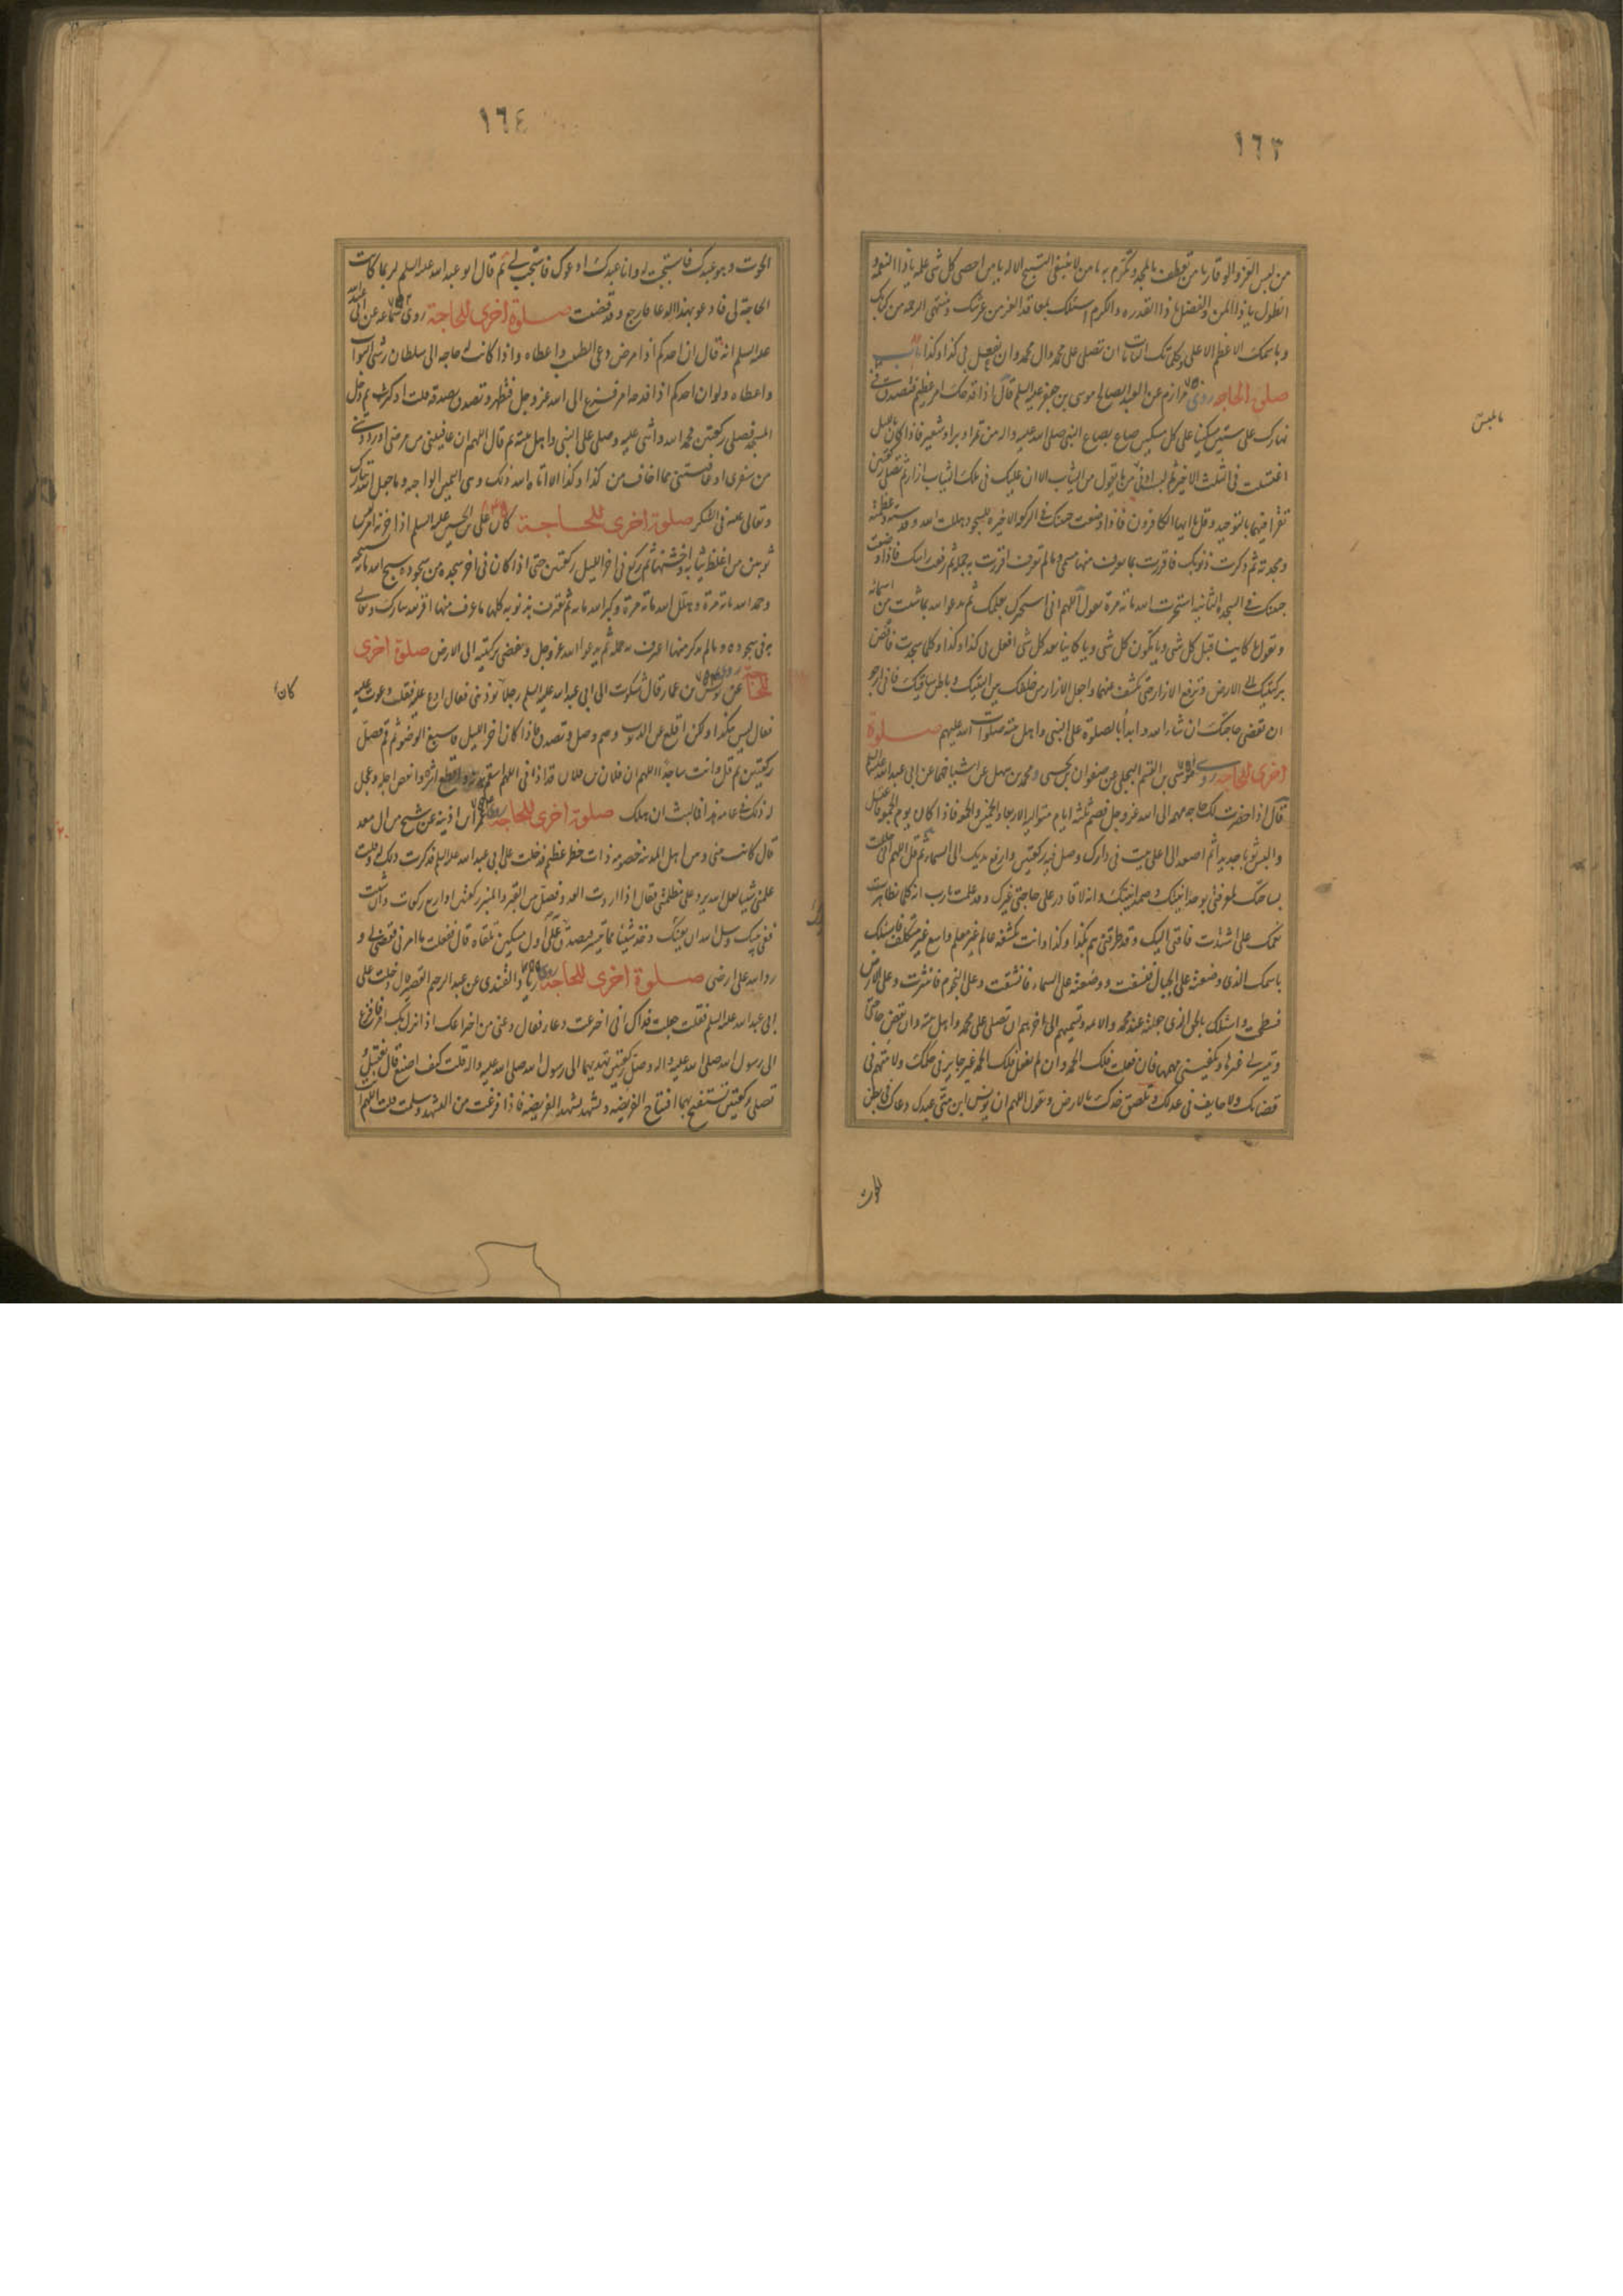 ١٦٣
من لبس العز والوقار يا من تعطف بالمجد وتكرم به يا من لا ينبغي التسبيح الا له يا من احصى كل شئ علمه يا ذا النعمة و
الطول يا ذا المن والفضل يا ذا القدرة والكرم اسئلك بمعاقد العز من عرشك ومنتهى الرحمة من كتابك
وباسمك الاعظم الاعلى وكلماتك التامات ان تصلى على محمد وال محمد وان تفعل بى كذا وكذا باب
صلوة الحاجة روى مرازم عن العبد الصالح موسى بن جعفر عليه السلم قال اذا فدحك امر عظيم فتصدق في
نهارك على ستين مسكينا على كل مسكين صاع بصاع النبى صلى الله عليه واله من تمر او بر او شعير فاذا كان بالليل
اغتسلت فى الثلث الاخير ثم لبست ادنى ما يلبس من تعول من الثياب الا ان عليك فى تلك الثياب ازار ثم تصلى ركعتين
تقرأ فيهما بالتوحيد وقل يا ايها الكافرون فاذا وضعت جبينك في الركعة الاخيرة للسجود هللت الله وقدسته وعظمته
ومجدته ثم ذكرت ذنوبك فاقررت بما تعرف منها مسمى وما لم تعرف اقررت به جملة ثم رفعت راسك فاذا وضعت
جبينك في السجدة الثانية استخرت الله مائة مرة تقول اللهم انى استخيرك بعلمك ثم تدعو الله بما شئت من اسمائه
وتقول يا كاينا قبل كل شئ ويا مكون كل شئ ويا كاينا بعد كل شئ افعل بى كذا وكذا وكلما سجدت فافض
بركبتيك الى الارض وترفع الازار حتى تكشف عنهما واجعل الازار من خلفك بين اليتيك وباطن ساقيك فانى ارجو
ان تقضى حاجتك ان شاء الله وابدأ بالصلوة على النبى واهل بيته صلوات الله عليهم صلوة
اخرى للحاجة روى موسى بن القسم البجلى عن صفوان بن يحيى ومحمد بن سهل عن اشياخهما عن ابى عبد الله عليه السلم
قال اذا حضرت لك حاجة مهمة الى الله عز وجل فصم ثلثة ايام متوالية الاربعاء والخميس والجمعة فاذا كان يوم الجمعة فاغتسل
والبس ثوبا جديدا ثم اصعد الى اعلى بيت فى دارك وصل فيه ركعتين وارفع يديك الى السماء ثم قل اللهم انى حللت
بساحتك لمعرفتى بوحدانيتك وصمدانيتك وانه لا قادر على حاجتى غيرك وقد علمت يا رب انه كلما تظاهرت
نعمك على اشتدت فاقتى اليك وقد طرقنى هم كذا وكذا وانت بكشفه عالم غير معلم واسع غير متكلف فاسئلك
باسمك الذى وضعته على الجبال فنسفت ووضعته على السماء فانشقت وعلى النجوم فانتثرت وعلى الارض
فسطحت واسئلك بالحق الذى جعلته عند محمد والائمة وتسميهم الى اخرهم ان تصلى على محمد واهل بيته وان تقضى حاجتى
وتيسر لى عسرها وتكفينى مهمها فان فعلت فلك الحمد وان لم تفعل فلك الحمد غير جاير فى حكمك ولا متهم فى
قضائك ولا حايف فى عدلك وتلصق خدك بالارض وتقول اللهم ان يونس ابن متى عبدك دعاك فى بطن
الحوت
ما يلبس
١٦٤
الحوت وهو عبدك فاستجبت له وانا عبدك ادعوك فاستجب لى ثم قال ابو عبد الله عليه السلم لربما كانت
الحاجة لى فادعو بهذا الدعا فارجع وقد قضيت صلوة اخرى للحاجة روى سماعة عن ابى عبد الله
عليه السلم انه قال ان احدكم اذا مرض دعى الطبيب واعطاه واذا كانت له حاجة الى سلطان رشى البواب
واعطاه ولو ان احدكم اذا فدحه امر فزع الى الله عز وجل فتطهر وتصدق بصدقة قلت او كثرت ثم دخل
المسجد فصلى ركعتين فحمد الله واثنى عليه وصلى على النبى واهل بيته ثم قال اللهم ان عافيتنى من مرضى او رددتنى
من سفرى او عافيتنى مما اخاف من كذا وكذا الا اتاه الله ذلك وهى اليمين الواجبة وما جعل الله تبارك
وتعالى عليه فى الشكر صلوة اخرى للحاجة كان على بن الحسين عليه السلم اذا احزنه امر لبس
ثوبين من اغلظ ثيابه واخشنها ثم ركع فى اخر الليل ركعتين حتى اذا كان فى اخر سجدة من سجوده سبح الله مائة تسبيحة
وحمد الله مائة مرة وهلل الله مائة مرة وكبر الله مائة ثم يعترف بذنوبه كلها ما عرف منها اقر له تبارك وتعالى
به فى سجوده وما لم يذكر منها اعترف به جملة ثم يدعو الله عز وجل ويفضى بركبتيه الى الارض صلوة اخرى
للحاجة روى عن يونس بن عمار قال شكوت الى ابى عبد الله عليه السلم رجلا يؤذينى فقال ادع عليه فقلت دعوت عليه
فقال ليس هكذا ولكن اقلع عن الذنوب وصم وصل وتصدق فاذا كان اخر الليل فاسبغ الوضوء ثم قم فصل
ركعتين ثم قل وانت ساجد اللهم ان فلان بن فلان قد اذانى اللهم اسقم بدنه واقطع اثره وانقص اجله وعجل
له ذلك فى عامه هذا فما لبث ان هلك صلوة اخرى للحاجة روى عمر بن اذينة عن شيخ من ال سعد
قال كانت بينى وبين رجل من اهل المدينة خصومة ذات خطر عظيم فدخلت على ابى عبد الله عليه السلم فذكرت ذلك له وقلت
علمنى شيئا لعل الله يرد على مظلمتى فقال اذا اردت العدو فصل بين القبر والمنبر ركعتين او اربع ركعات وان شئت
ففى بيتك وسل الله ان يعينك وخذ شيئا مما تيسر فتصدق به على اول مسكين تلقاه قال ففعلت ما امرنى فقضى لى و
رد الله على ارضى صلوة اخرى للحاجة روى زياد القندى عن عبد الرحيم القصير قال دخلت على
ابى عبد الله عليه السلم فقلت جعلت فداك انى اخترعت دعاء فقال دعنى من اختراعك اذا نزل بك امر فافزع
الى رسول الله صلى الله عليه واله وصل ركعتين تهديهما الى رسول الله صلى الله عليه واله قلت كيف اصنع قال تغتسل و
تصلى ركعتين تستفتح بهما افتتاح الفريضة وتشهد تشهد الفريضة فاذا فرغت من التشهد وسلمت قلت اللهم
كان